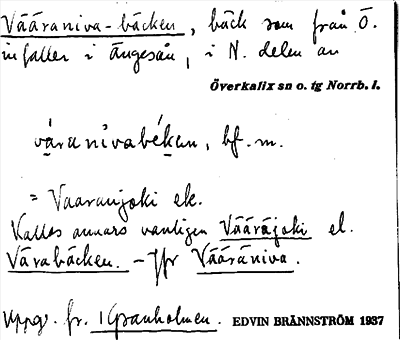 Vääräniva-bäcken, bäck som från Ö.
infaller i Ängesån, i N. delen av
Överkalix sn o. tg Norrb. l.
väranivabékan, bf. m.
= Vaaranjoki ek.
Kallas annars vanligen Vääräjoki el.
Värabäcken. - Jfr Vääräniva.
Uppg. fr. 1 Granholmen. EDVIN BRÄNNSTRÖM 1937